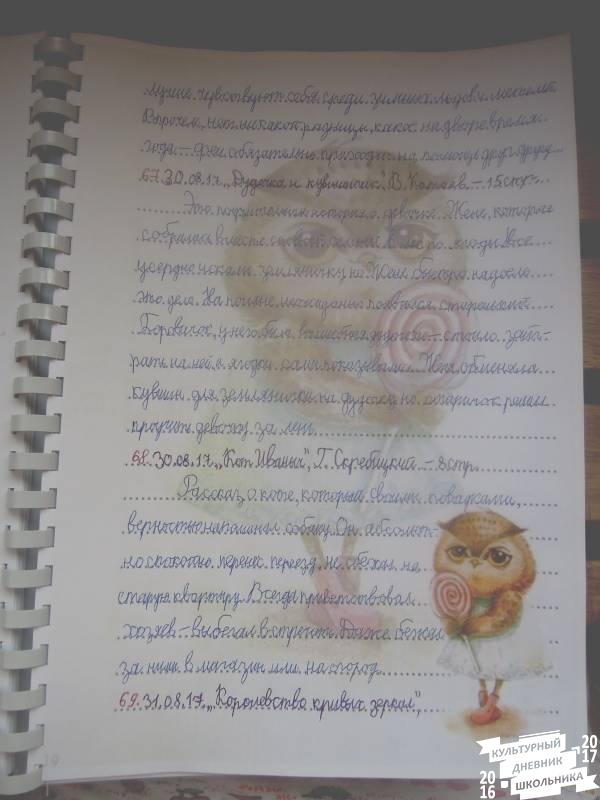 лучше чувствуют себя среди зимних льдов и метелей.
Впрочем, нет никакой разницы, какое на дворе время
года – феи обязательно приходят на помощь друг другу.
67. 30.08.17. „Дудочка и кувшинчик", В. Катаев. – 15 стр.
Это поучительная история о девочке Жене, которая
собралась вместе со своей семьёй в лес по ягоды. Все
усердно искали земляничку, но Жене быстро надоело
это дело. На поляне неожиданно появился старенький
Боровичок, у него была волшебная дудочка – стоило заиг-
рать на ней, и ягодки сами показывались. Женя обменяла
кувшин для земляники на дудочку, но старичок решил
проучить девочку за лень.
68. 30.08.17. „Кот Иваныч", Г. Скребицкий – 8 стр.
Рассказ о коте, который своими повадками,
верностью напоминал собаку. Он абсолют-
но спокойно перенёс переезд, не сбежал на
старую квартиру. Всегда приветствовал
хозяев – выбегал встречать. Даже бежал
за ними в магазин или на огород.
69. 31.08.17. „Королевство кривых зеркал",
КУЛЬТУРНЫЙ
ДНЕВНИК
ШКОЛЬНИКА
2016
2017